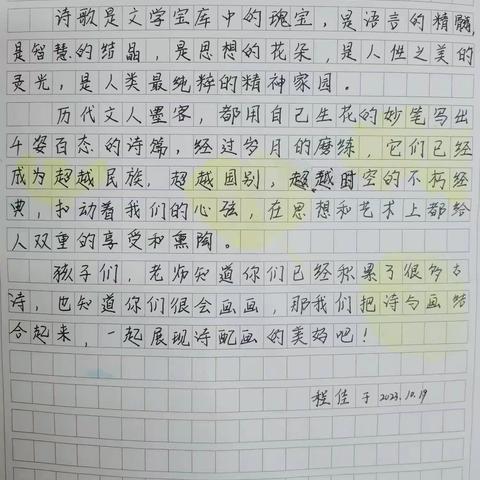 诗歌是文学宝库中的瑰宝,是语言的精髓,
是智慧的结晶,是思想的花朵,是人性之美的
灵光,是人类最纯粹的精神家园。
历代文人墨客,都用自己生花的妙笔写出
千姿百态的诗篇,经过岁月的磨练,它们已经
成为超越民族,超越国别,超越时空的不朽经
典,扣动着我们的心弦,在思想和艺术上都给
人双重的享受和熏陶。
孩子们,老师知道你们已经积累了很多古
诗,也知道你们很会画画,那我们把诗与画结
合起来,一起展现诗配画的美妙吧!
程佳于2023.10.19